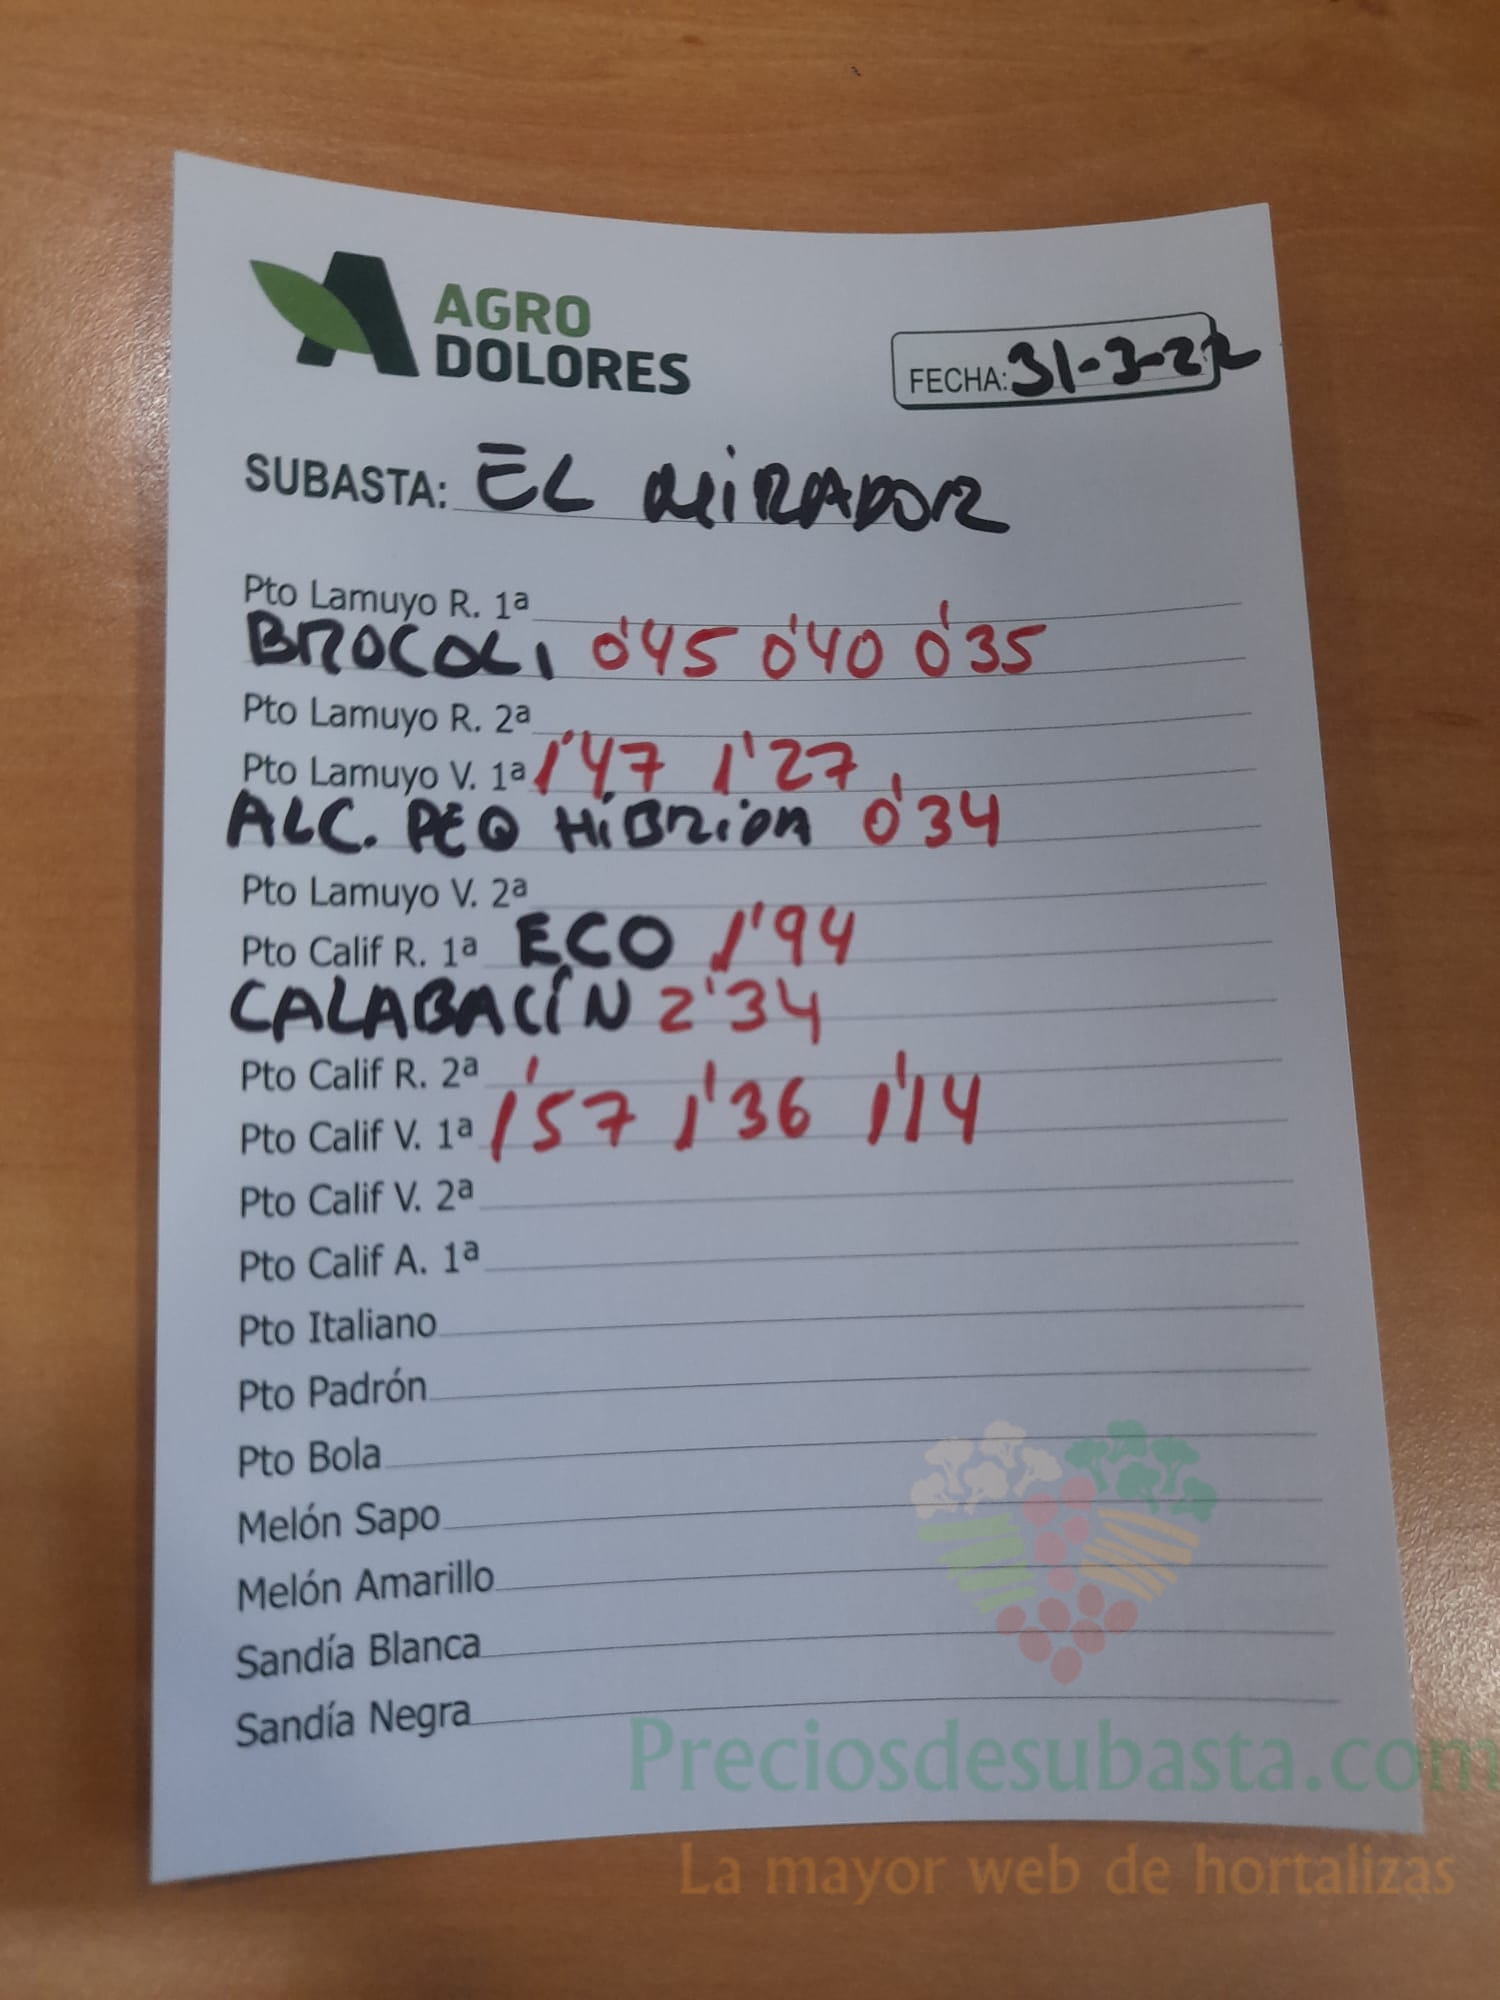 AGRO
DOLORES
FECHA: 31-3-22
SUBASTA: EL MIRADOR
Pto Lamuyo R. 1ª
BROCOLI 0'45 0'40 0'35
Pto Lamuyo R. 2ª
Pto Lamuyo V. 1ª 1'47 1'27
ALC. PEQ HÍBRIDA 0'34
Pto Lamuyo V. 2ª
Pto Calif R. 1ª ECO 1'94
CALABACÍN 2'34
Pto Calif R. 2ª
Pto Calif V. 1ª 1'57 1'36 1'14
Pto Calif V. 2ª
Pto Calif A. 1ª
Pto Italiano
Pto Padrón
Pto Bola
Melón Sapo
Melón Amarillo
Sandía Blanca
Sandía Negra
Preciosdesubasta.com
La mayor web de hortalizas